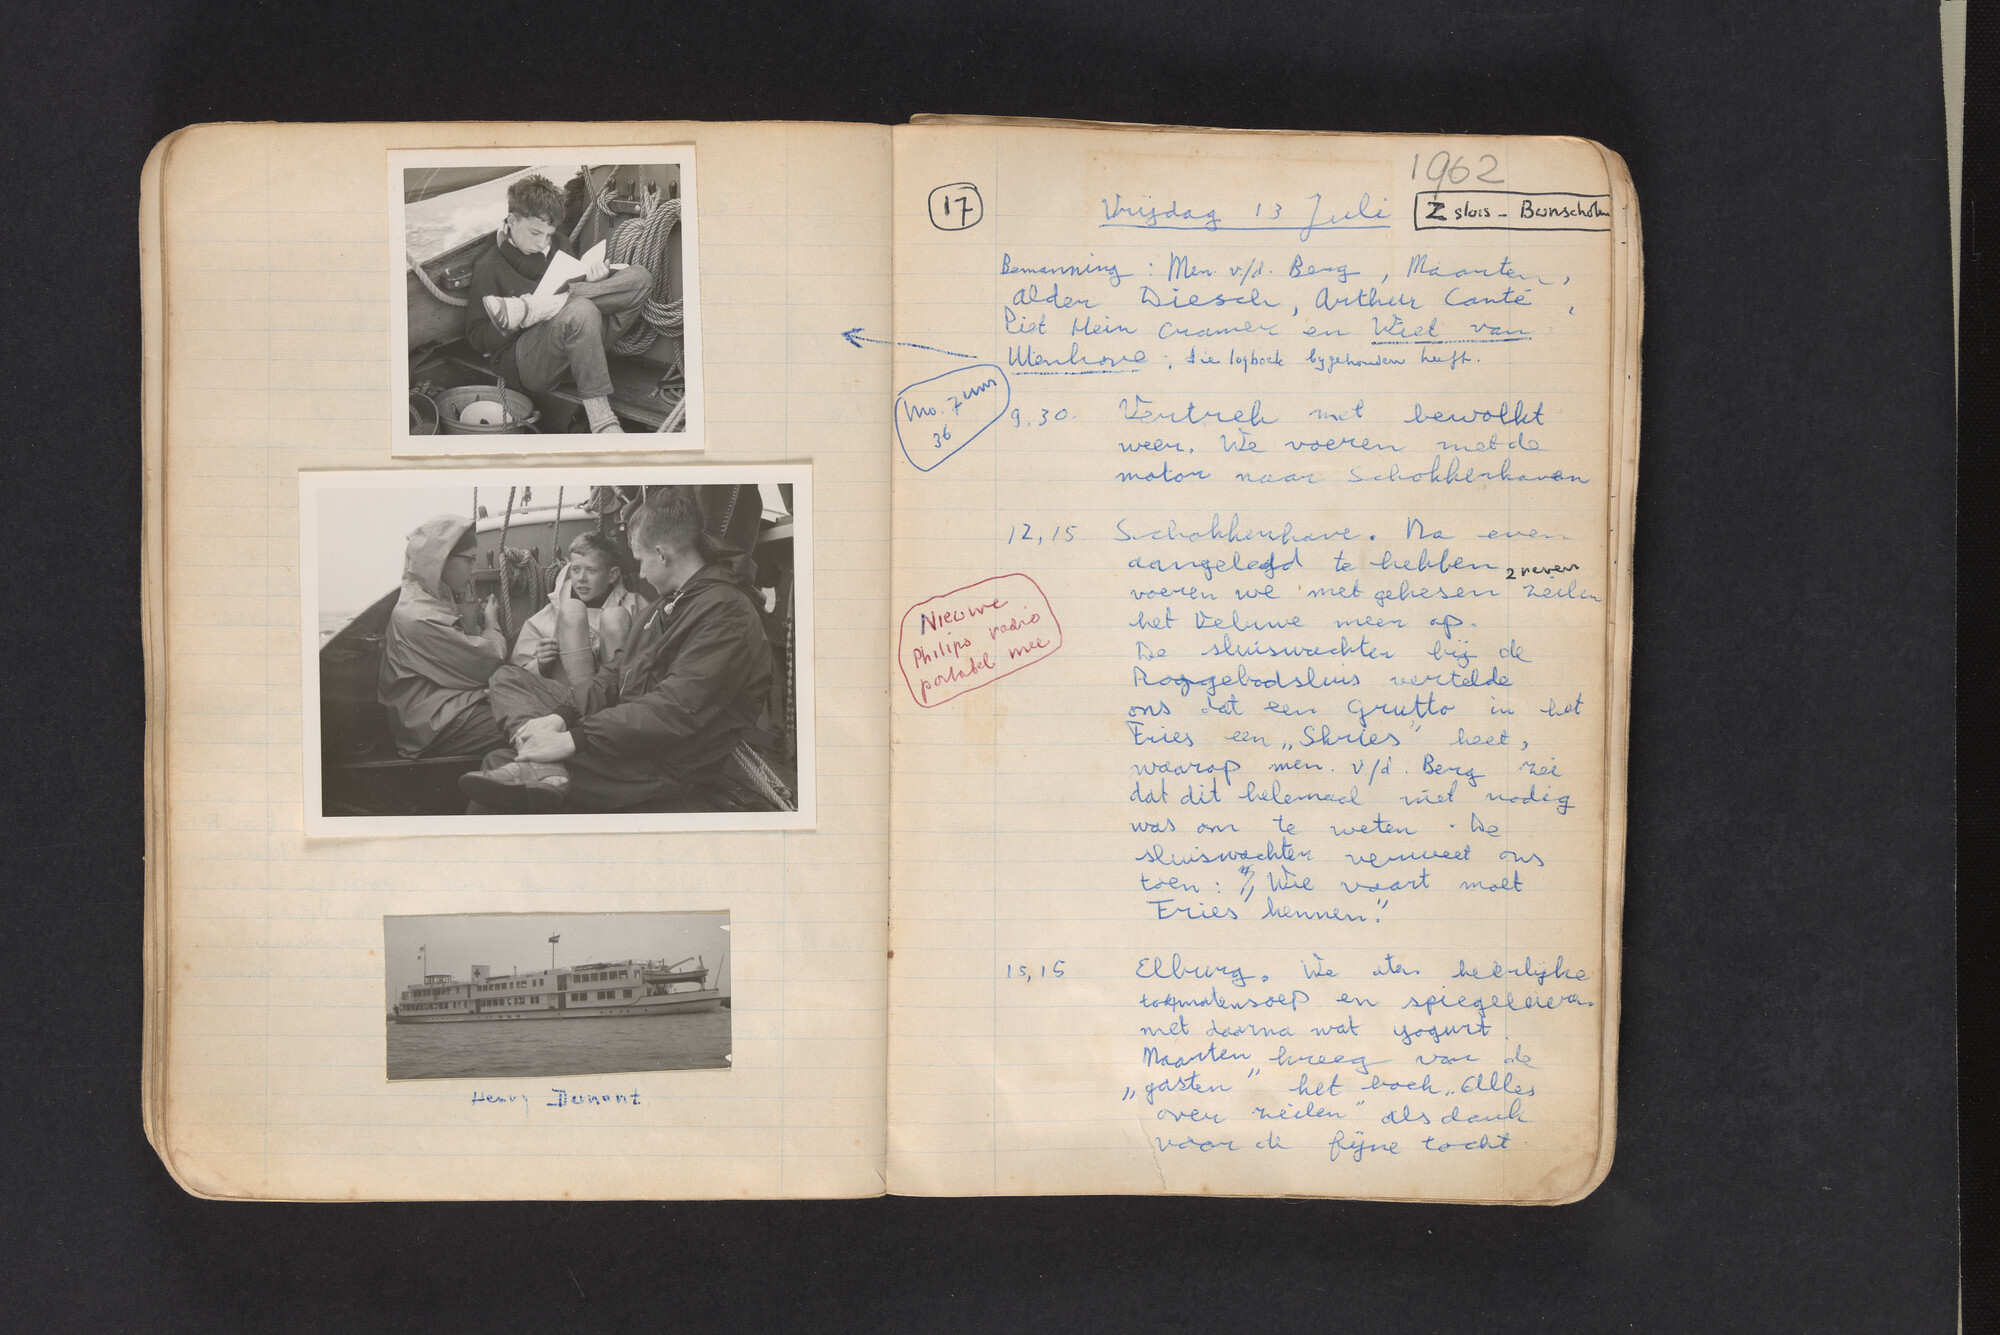 Henry Dunant
1962
17
Vrijdag 13 Juli
Z sluis - Bunschoten
Bemanning : Men. v/d. Berg , Maarten,
Alder Diesch, Arthur Conté,
Piet Hein Cramer en Wiet van
; die logboek bygehouden heeft.
Mo. 7 uur
36
9.30. Vertrek met bewolkt
weer. We voeren met de
motor naar Schokkerhaven
12,15 Schokkerhave. Na even
aangelegd te hebben 2 reven
voeren we met gehesen zeilen
het Veluwe meer op.
De sluiswachter bij de
Roggebodsluis vertelde
ons dat een Grutto in het
Fries een „Skries" heet,
waarop men. v/d. Berg zei
dat dit helemaal niet nodig
was om te weten. De
sluiswachter verweet ons
toen : „Wie vaart moet
Fries kennen."
Nieuwe
Philips radio
portabel mee
15,15 Elburg. We aten heerlijke
tomatensoep en spiegeleieren
met daarna wat yogurt.
Maarten kreeg van de
„gasten" het boek „Alles
over zeilen" als dank
voor de fijne tocht